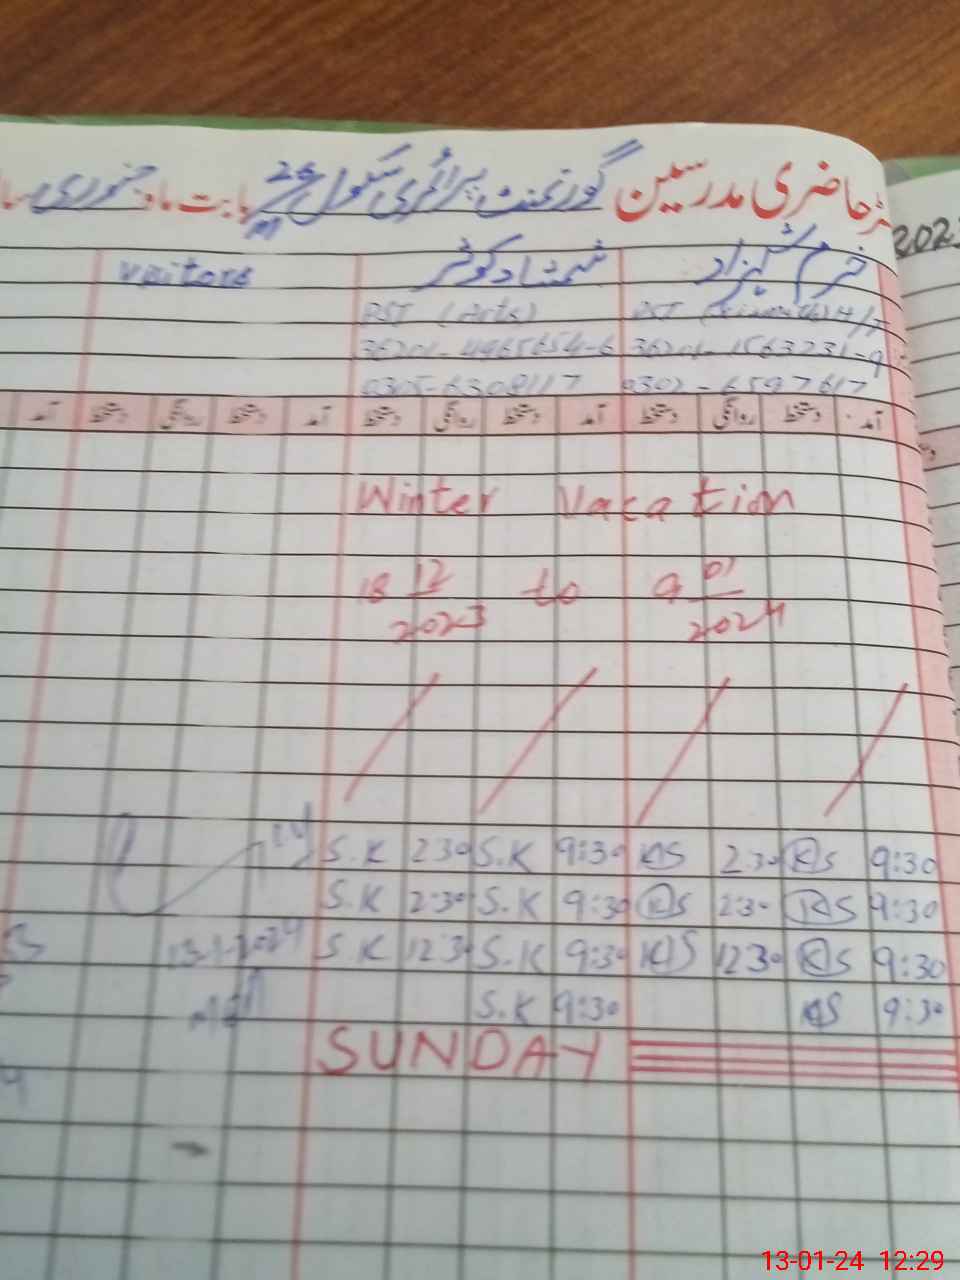 حاضری مدرسین گورنمنٹ پرائمری سکول 26/M بابت ماہ جنوری
2023
خرم شہزاد شمشاد کوثر Visitors
PST (Arts)
36201-4965654-6 36201-1563231-9
0305-6308117 0302-6597617
آمد دستخط روانگی دستخط آمد دستخط روانگی دستخط آمد دستخط روانگی دستخط آمد
Winter Vacation
18 12/2023 to 9 01/2024
S.K 2:30 S.K 9:30 KS 2:30 KS 9:30
S.K 2:30 S.K 9:30 KS 2:30 KS 9:30
13-1-2024 S.K 12:30 S.K 9:30 KS 12:30 KS 9:30
S.K 9:30 KS 9:30
SUNDAY
13-01-24 12:29